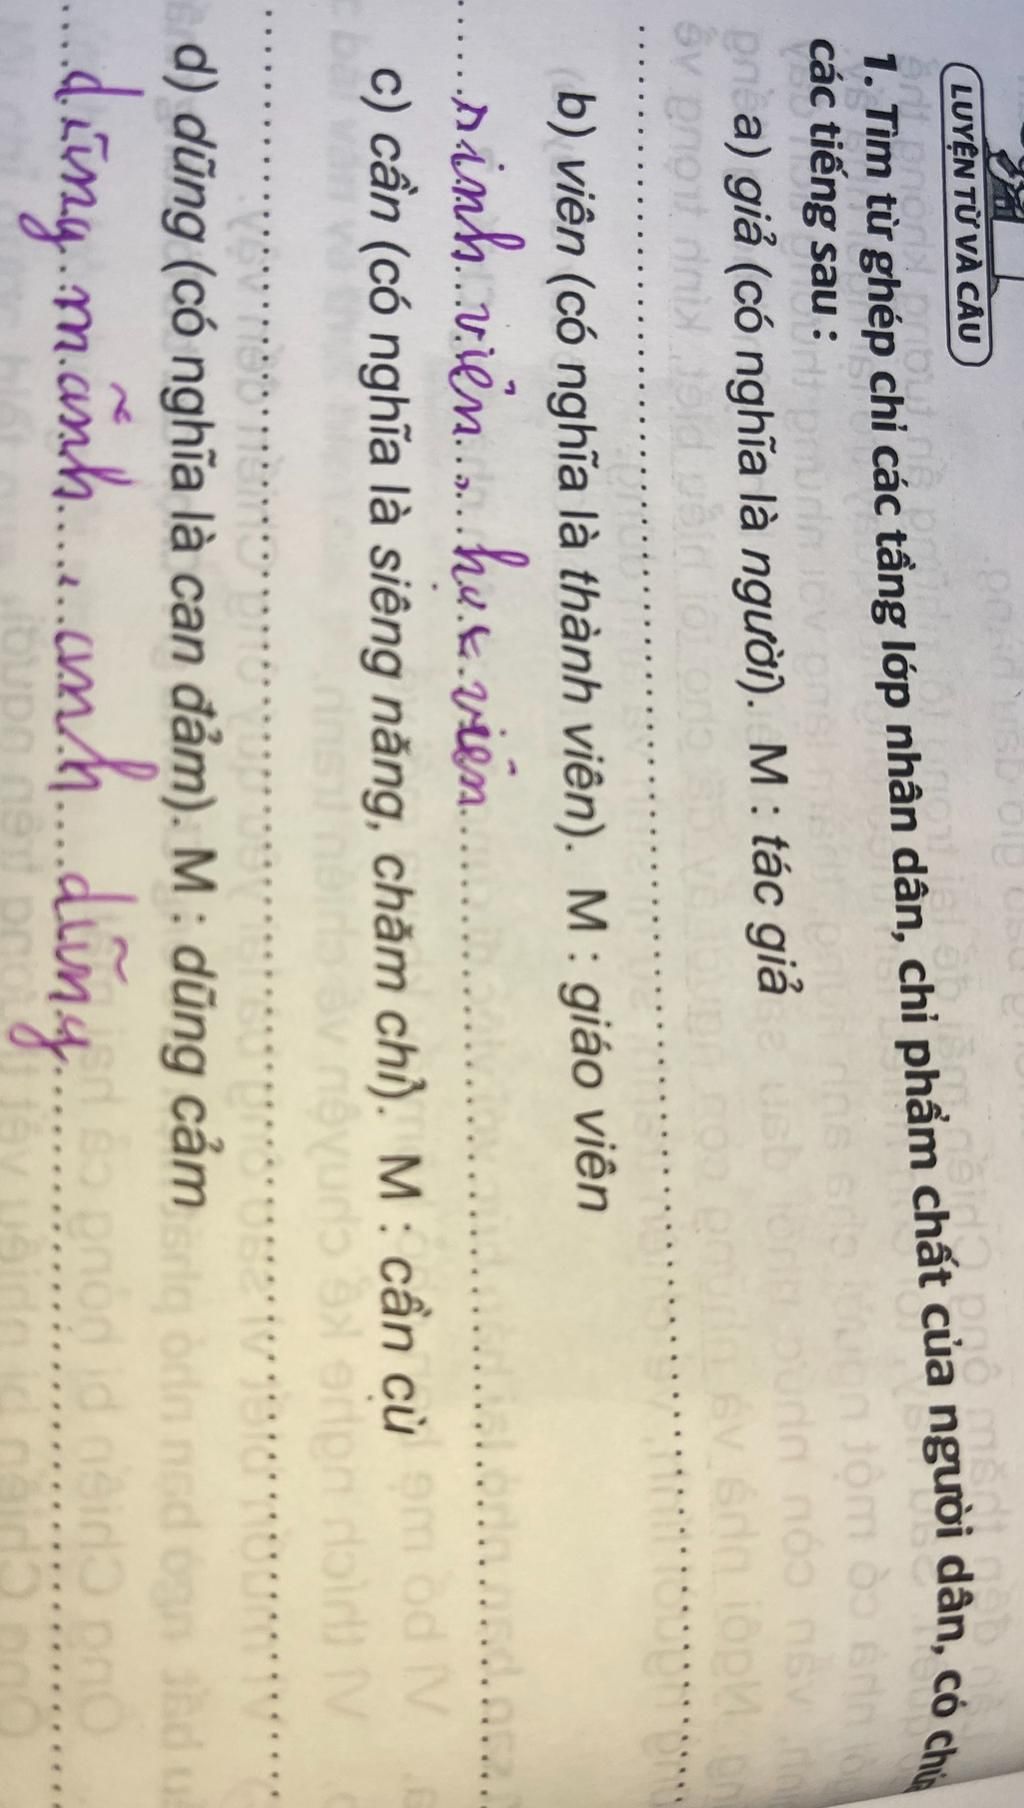 LUYỆN TỪ VÀ CÂU
1. Tìm từ ghép chỉ các tầng lớp nhân dân, chỉ phẩm chất của người dân, có chứa
các tiếng sau :
a) giả (có nghĩa là người). M : tác giả
b) viên (có nghĩa là thành viên). M : giáo viên
sinh viên, học viên
c) cần (có nghĩa là siêng năng, chăm chỉ). M : cần cù
d) dũng (có nghĩa là can đảm). M : dũng cảm
dũng mãnh, anh dũng